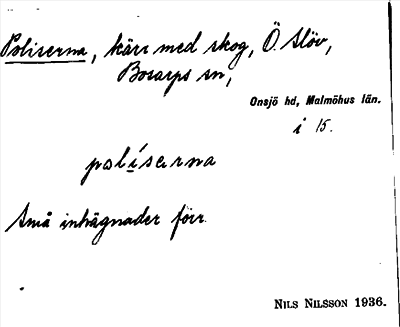 Poliserna, kärr med skog, Ö. Slöv,
Bosarps sn,
Onsjö hd, Malmöhus län.
i 15.
palíserna
små inhägnader förr.
NILS NILSSON 1936.